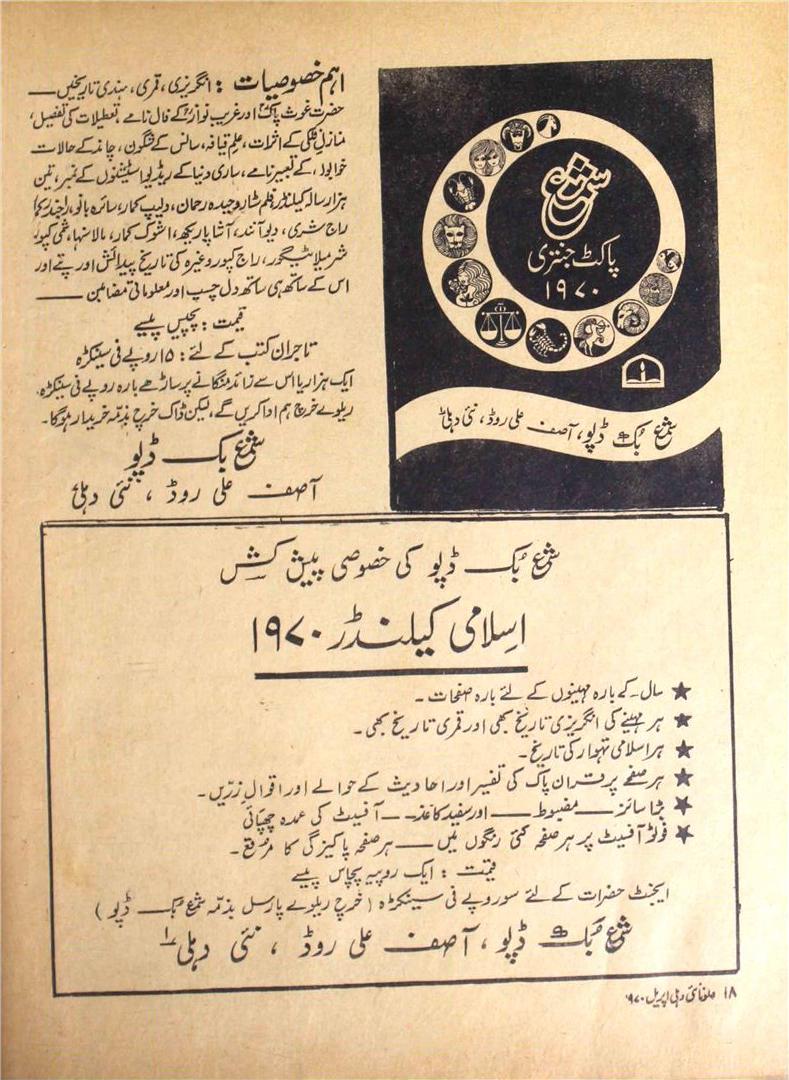 اہم خصوصیات : انگریزی، قمری، ہندی تاریخیں
حضرت غوث پاکؒ اور غریب نوازؒ کے فال نامے، تعطیلات کی تفصیل،
منازل فلکی کے اثرات، علم قیافہ، سانس کے شگون، چاند کے حالات
خوابوں کے تعبیر نامے، ساری دنیا کے ریڈیو اسٹیشنوں کے نمبر، تین
ہزار سالہ کیلنڈر فلم سٹار وحیدہ رحمان، دلیپ کمار، سائرہ بانو، راجندر کمار
راج شری، دیو آنند، آشا پاریکھ، اشوک کمار، مالا سنہا، شمی کپور
شرمیلا ٹیگور، راج کپور وغیرہ کی تاریخ پیدائش اور پتے اور
اس کے ساتھ ہی ساتھ دل چسپ اور معلوماتی مضامین
قیمت : پچیس پیسے
تاجران کتب کے لئے : ۱۵ روپے فی سینکڑہ
ایک ہزار یا اس سے زائد منگانے پر ساڑھے بارہ روپے فی سینکڑہ،
ریلوے خرچ ہم ادا کریں گے، لیکن ڈاک خرچ بذمّہ خریدار ہوگا۔
شمع بک ڈپو
آصف علی روڈ، نئی دہلی
شمع
پاکٹ جنتری
۱۹۷۰
شمع بک ڈپو، آصف علی روڈ، نئی دہلی
شمع بک ڈپو کی خصوصی پیش کش
اسلامی کیلنڈر ۱۹۷۰
★ سال کے بارہ مہینوں کے لئے بارہ صفحات۔
★ ہر مہینے کی انگریزی تاریخ بھی اور قمری تاریخ بھی۔
★ ہر اسلامی تہوار کی تاریخ۔
★ ہر صفحے پر قرآن پاک کی تفسیر اور احادیث کے حوالے اور اقوال زرّیں۔
★ بڑا سائز — مضبوط — اور سفید کاغذ — آفسیٹ کی عمدہ چھپائی
★ فوٹو آفسیٹ پر ہر صفحہ کئی رنگوں میں — ہر صفحہ پاکیزگی کا مرقع۔
قیمت : ایک روپیہ پچاس پیسے
ایجنٹ حضرات کے لئے سو روپے فی سینکڑہ (خرچ ریلوے پارسل بذمّہ شمع بک ڈپو)
شمع بک ڈپو، آصف علی روڈ، نئی دہلی ۱
۱۸ دہلی اپریل ۱۹۷۰ء